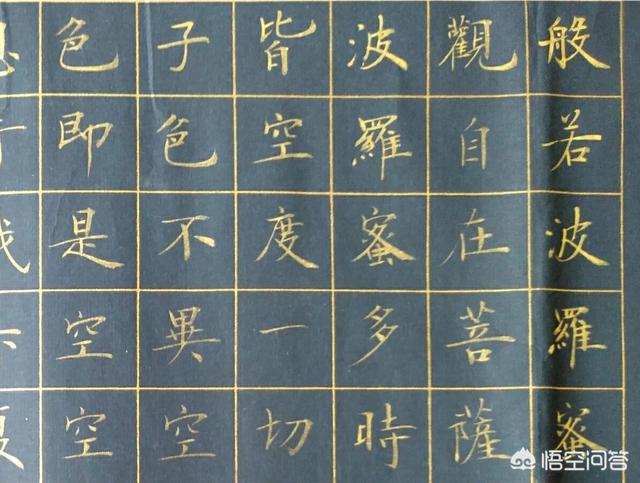 般若波羅蜜
觀自在菩薩
波羅蜜多時
皆空度一切
子色不異空
色即是空空
悟空问答